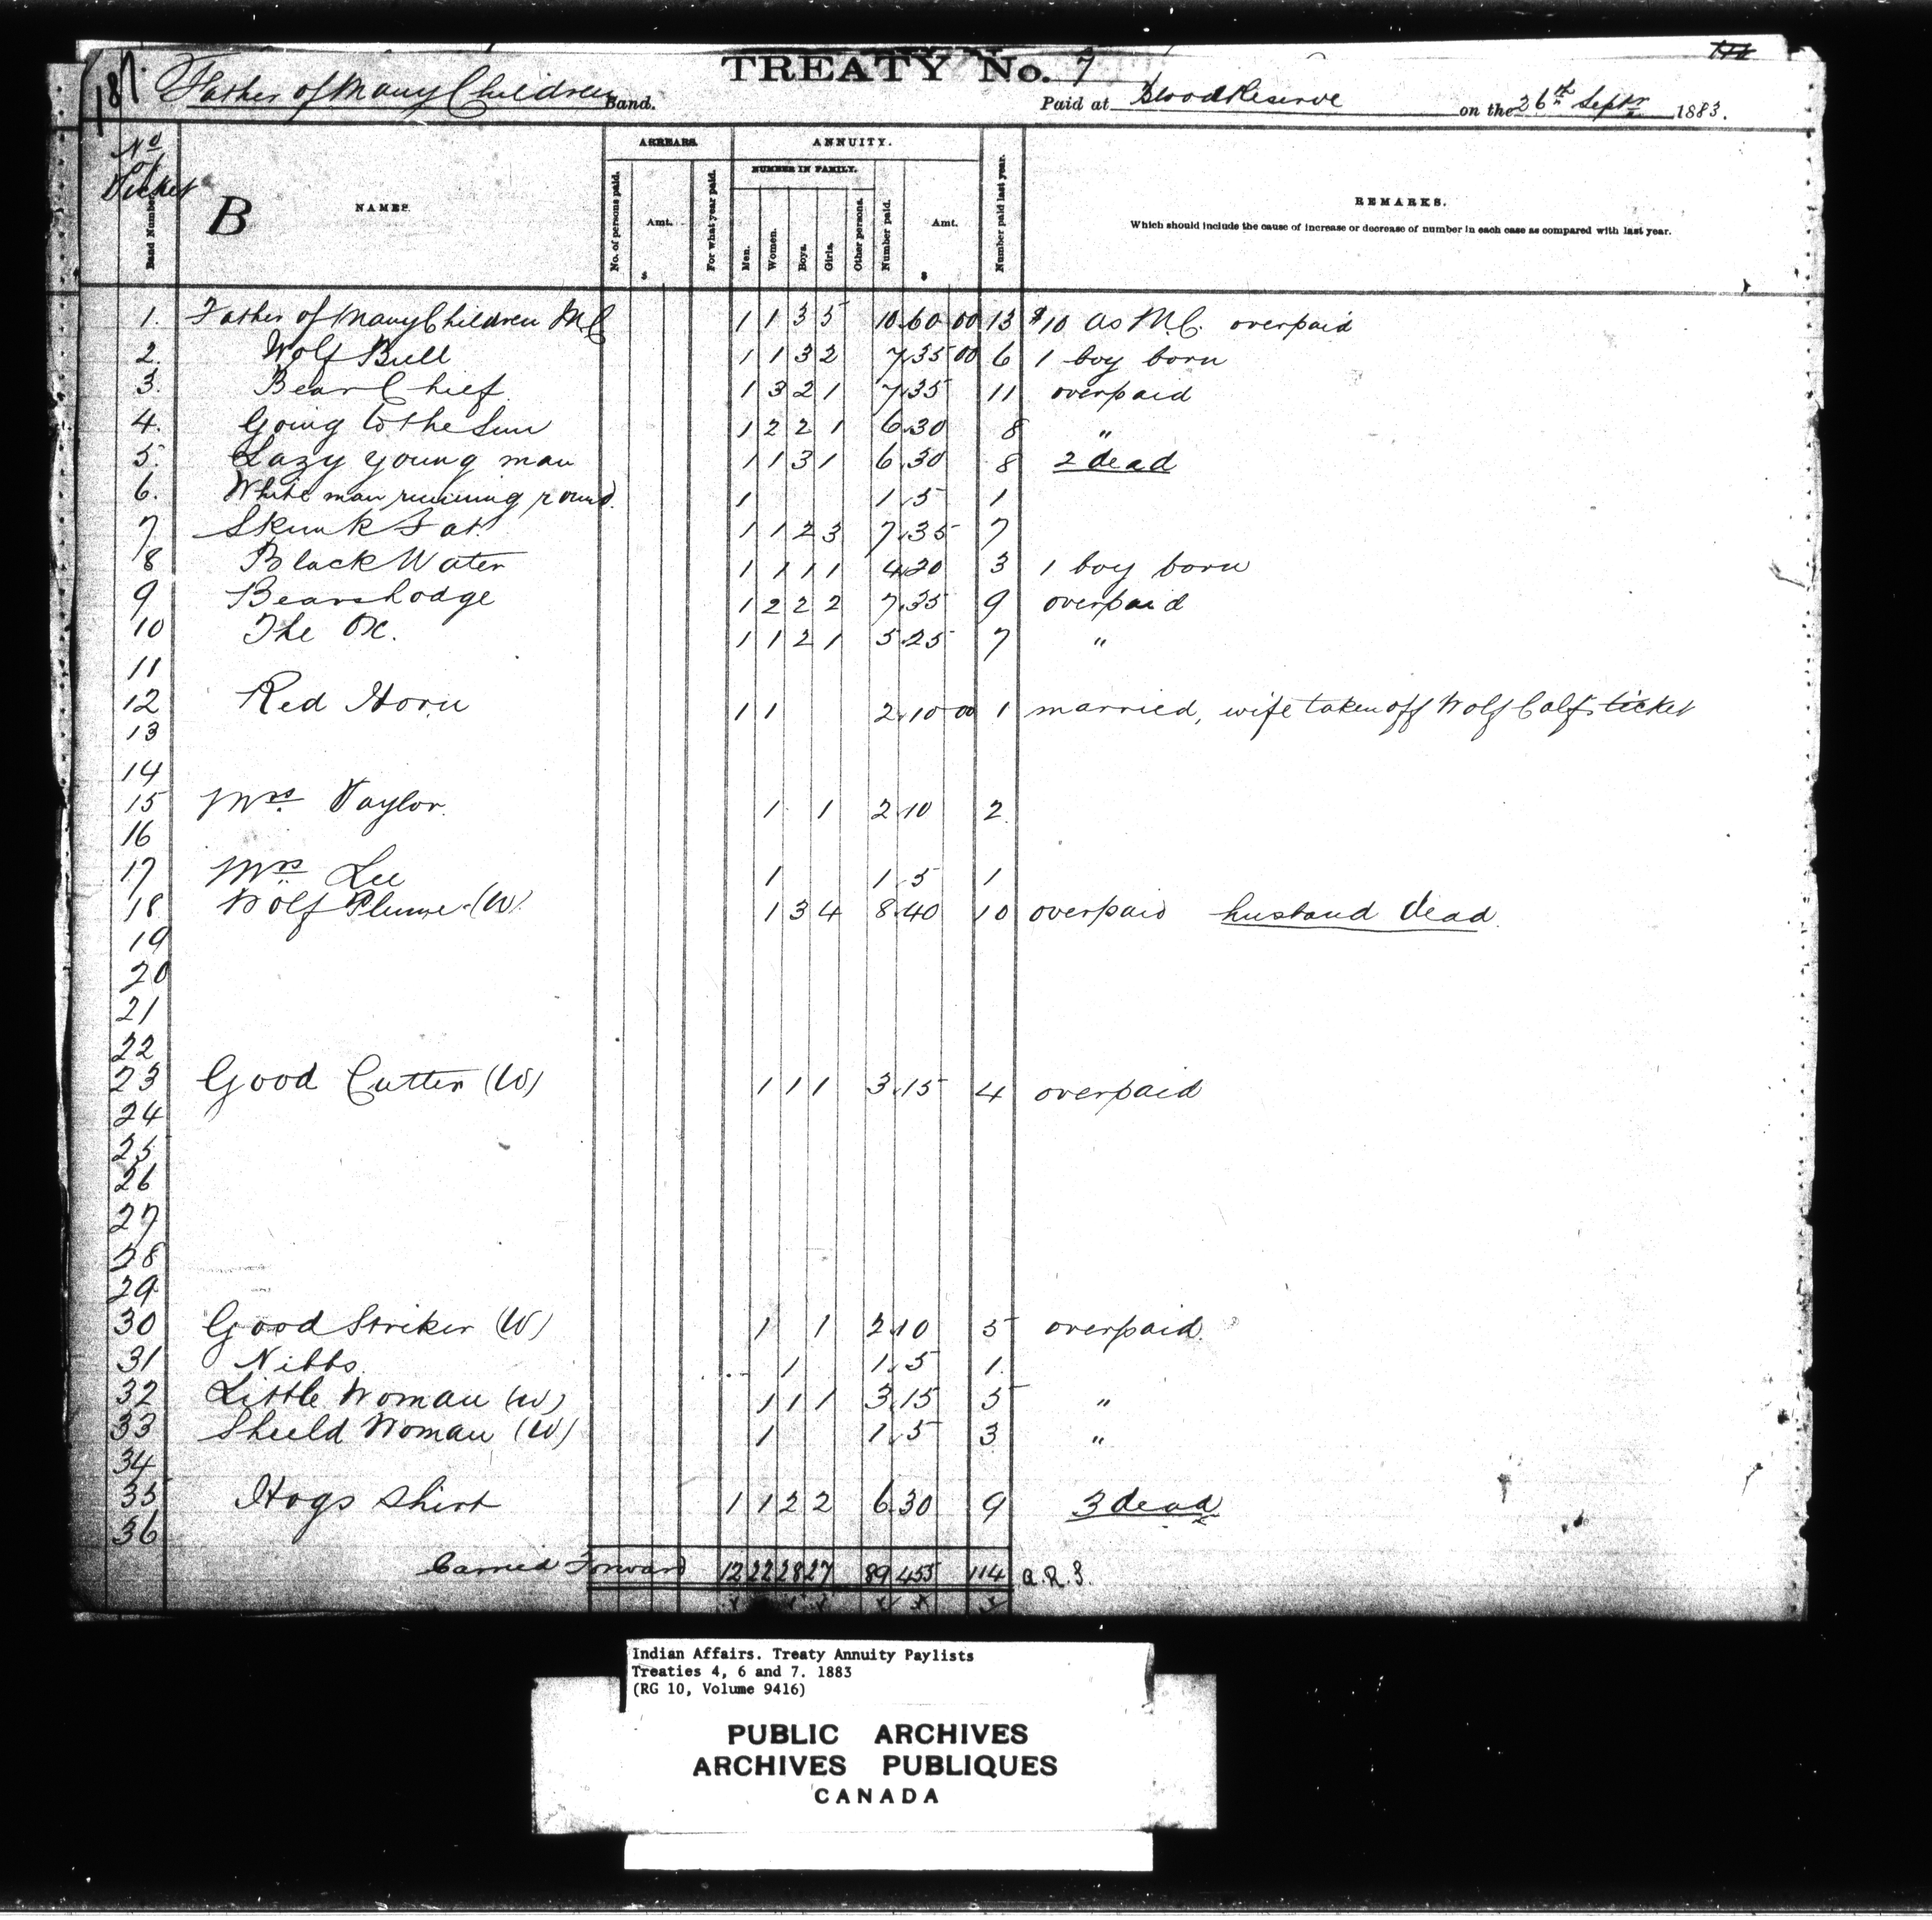 187. TREATY No. 7
Father of Many Children Band. Paid at Blood Reserve on the 26th Septr 1883.
No of Ticket
Band Number.
B NAMES.
ARREARS. ANNUITY.
NUMBER IN FAMILY.
No. of persons paid. Amt. $ For what year paid. Men. Women. Boys. Girls. Other persons. Number paid. Amt. $ Number paid last year.
REMARKS.
Which should include the cause of increase or decrease of number in each case as compared with last year.
1. Father of Many Children M.C 1 1 3 5 10 60 00 13 $10 as M.C. overpaid
2. Wolf Bull 1 1 3 2 7 35 00 6 1 boy born
3. Bear Chief. 1 3 2 1 7 35 11 overpaid
4. Going to the Sun 1 2 2 1 6 30 8 "
5. Lazy young man 1 1 3 1 6 30 8 2 dead
6. White man running round. 1 1 5 1
7 Skunk Fat. 1 1 2 3 7 35 7
8 Black Water 1 1 1 1 4 20 3 1 boy born
9 Bears Lodge 1 2 2 2 7 35 9 overpaid
10 The Ox. 1 1 2 1 5 25 7 "
11
12 Red Horn 1 1 2 10 00 1 married, wife taken off Wolf Calf's ticket
13
14
15 Mrs. Taylor. 1 1 2 10 2.
16
17 Mrs. Lee 1 1 5 1
18 Wolf Plume (W). 1 3 4 8 40 10 overpaid husband dead.
19
20
21
22
23 Good Cutter (W) 1 1 1 3 15 4 overpaid
24
25
26
27
28
29
30 Good Striker (W) 1 1 2 10 5 overpaid.
31 Nibbs. 1 1 5 1.
32 Little Woman (W) 1 1 1 3 15 5 "
33 Sheeld Woman (W) 1 1 5 3 "
34
35 Hogs Shirt 1 1 2 2 6 30 9 3 dead
36
Carried Forward 12 22 28 27 89 455 114 a.R.S.
Indian Affairs. Treaty Annuity Paylists
Treaties 4, 6 and 7. 1883
(RG 10, Volume 9416)
PUBLIC ARCHIVES
ARCHIVES PUBLIQUES
CANADA